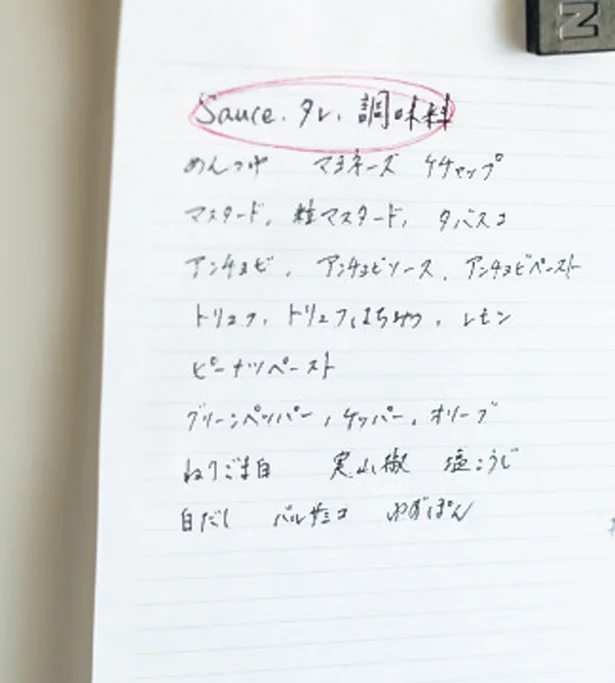 Sauce、タレ、調味料
めんつゆ マヨネーズ ケチャップ
マスタード、粒マスタード、タバスコ
アンチョビ、アンチョビソース、アンチョビペースト
トリュフ、トリュフはちみつ、レモン
ピーナツペースト
グリーンペッパー、ケッパー、オリーブ
ねりごま白 実山椒 塩こうじ
白だし バルサミコ ゆずぽん